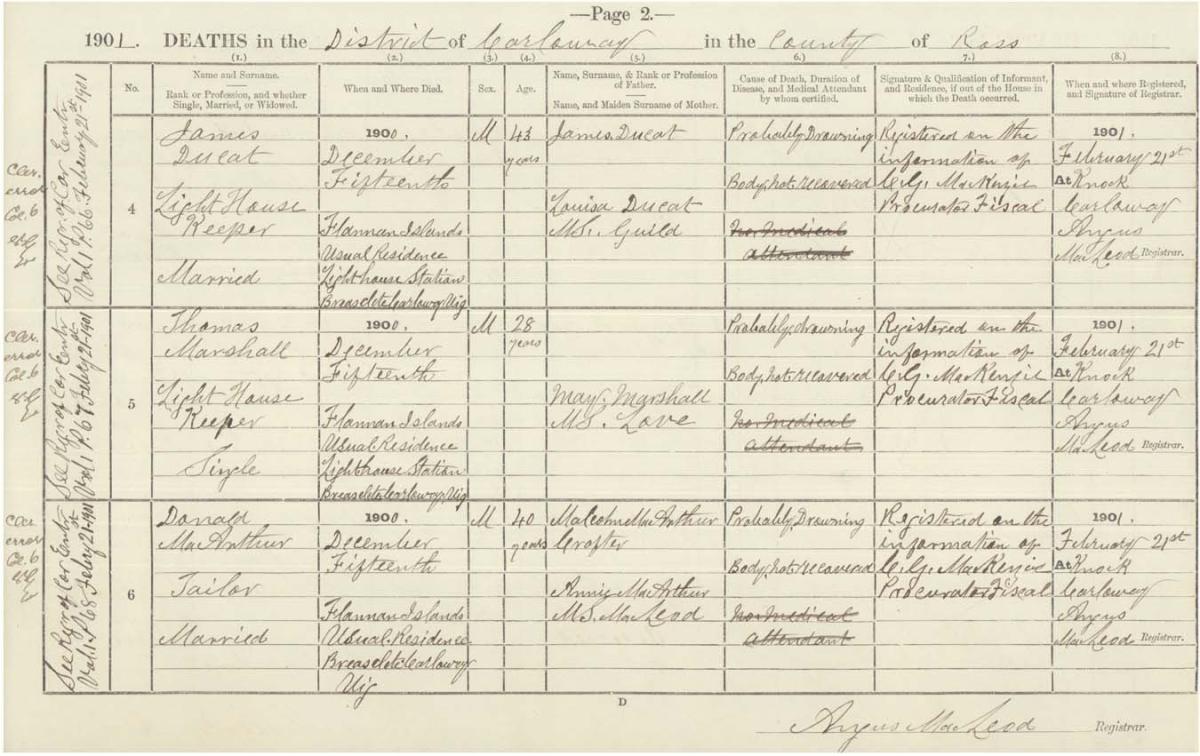 —Page 2.—
1901. DEATHS in the District of Carloway in the County of Ross
(1.) (2.) (3.) (4.) (5.) (6.) (7.) (8.)
No.
Name and Surname.
Rank or Profession, and whether
Single, Married, or Widowed.
When and Where Died.
Sex.
Age.
Name, Surname, & Rank or Profession
of Father.
Name, and Maiden Surname of Mother.
Cause of Death, Duration of
Disease, and Medical Attendant
by whom certified.
Signature & Qualification of Informant,
and Residence, if out of the House in
which the Death occurred.
When and where Registered,
and Signature of Registrar.
See Regr. of Cor. Entr
Vol. 1 P. 66 Febury 21st 1901
Cler.
error
Col. 6
4
James
Ducat
Light House
Keeper
Married
1900.
December
Fifteenth
Flannan Islands
Usual Residence
Lighthouse Station
Breasclete Carloway Uig
M
43
years
James Ducat
Louisa Ducat
M.S. Guild
Probably Drowning
Body not recovered
No medical
attendant
Registered on the
information of
C. G. MacKenzie
Procurator Fiscal
1901.
February 21st
At Knock
Carloway
Angus
MacLeod Registrar.
See Regr. of Cor. Entr
Vol. 1 P. 67 Febury 21st 1901
Cler.
error
Col. 6
5
Thomas
Marshall
Light House
Keeper
Single
1900.
December
Fifteenth
Flannan Islands
Usual Residence
Lighthouse Station
Breasclete Carloway Uig
M
28
years
May Marshall
M.S. Love
Probably drowning
Body not recovered
No medical
attendant
Registered on the
information of
C. G. MacKenzie
Procurator Fiscal
1901.
February 21st
At Knock
Carloway
Angus
MacLeod Registrar.
See Regr. of Cor. Entr
Vol. 1 P. 68 Febury 21st 1901
Cler.
error
Col. 6
6
Donald
MacArthur
Tailor
Married
1900.
December
Fifteenth
Flannan Islands
Usual Residence
Breasclete Carloway
Uig
M
40
years
Malcolm MacArthur
Crofter
Annie MacArthur
M.S. MacLeod
Probably Drowning
Body not recovered
No medical
attendant
Registered on the
information of
C. G. MacKenzie
Procurator Fiscal
1901.
February 21st
At Knock
Carloway
Angus
MacLeod Registrar.
D
Angus MacLeod Registrar.